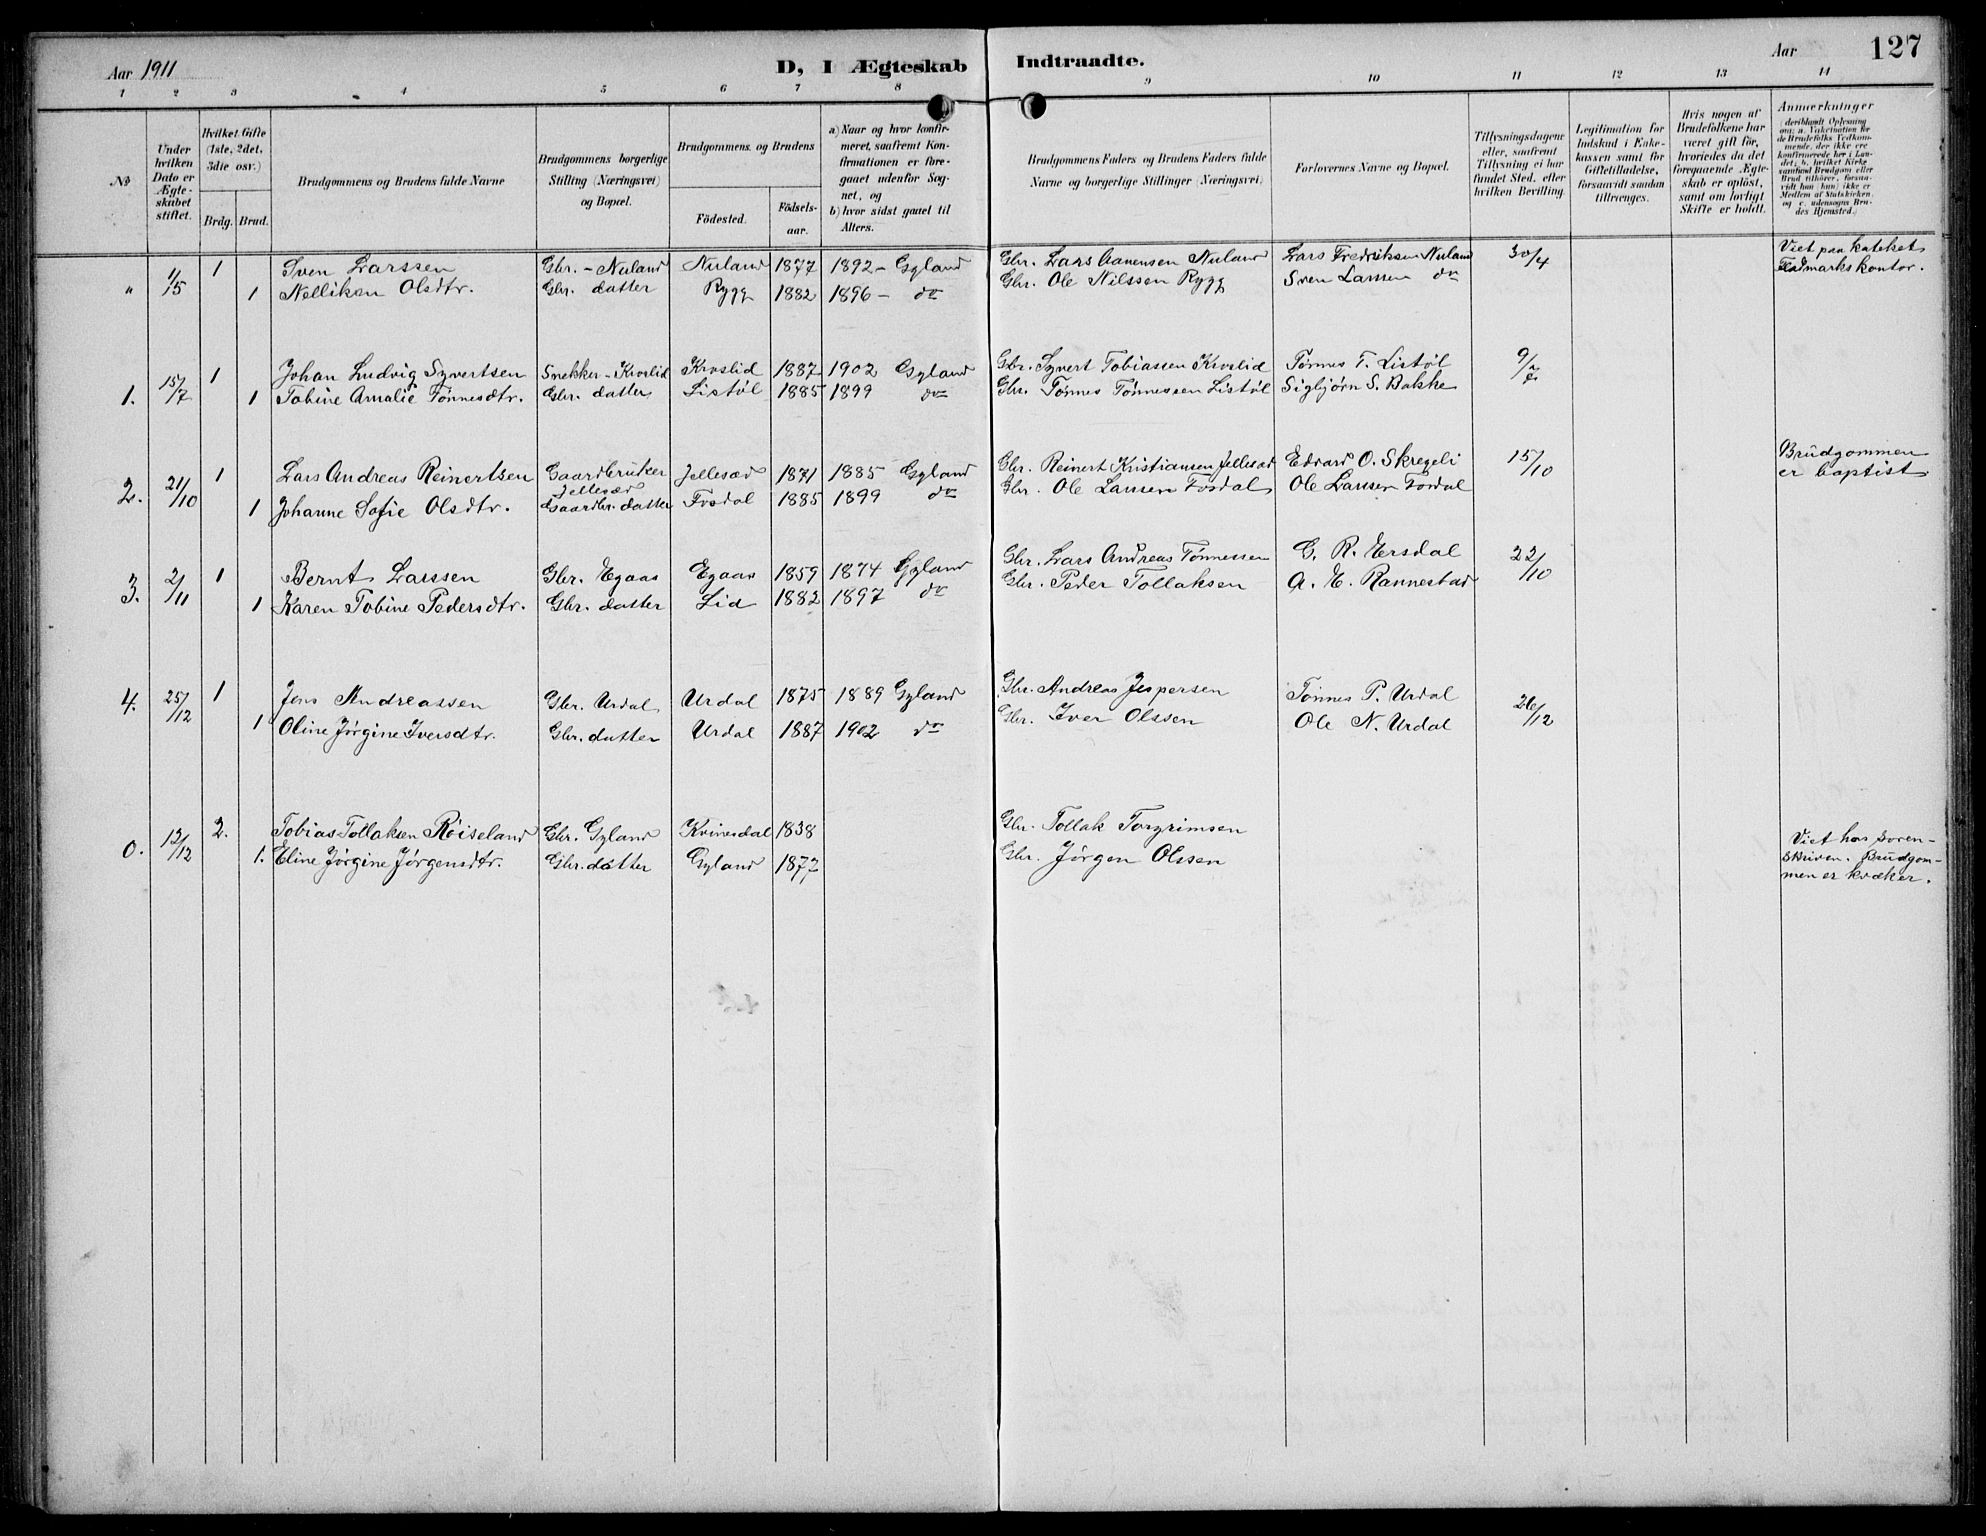 Aar 1911 D, I Ægteskab Indtraadte. Aar 127
1 2 3 4 5 6 7 8 9 10 11 12 13 14
No
Under hvilken Dato er Ægteskabet stiftet.
Hvilket Gifte (1ste, 2det, 3die osv.)
Brdg. Brud.
Brudgommens og Brudens fulde Navne
Brudgommens borgerlige Stilling (Næringsvei) og Bopæl.
Brudgommens og Brudens
Födested. Födselsaar.
a) Naar og hvor konfirmeret, saafremt Konfirmationen er foregaaet udenfor Sognet, og
b) hvor sidst gaaet til Alters.
Brudgommens Faders og Brudens Faders fulde Navne og borgerlige Stillinger (Næringsvei)
Forlovernes Navne og Bopæl.
Tillysningsdagene eller, saafremt Tillysning ei har fundet Sted, efter hvilken Bevilling.
Legitimation for Indskud i Enkekassen samt for Giftetilladelse, forsaavidt saadan tiltrænges.
Hvis nogen af Brudefolkene har været gift før, hvoriedes da det foregaaende Ægteskab er oplöst, samt om lovligt Skifte er holdt.
Anmerkninger (deriblandt Oplysning om: a. Vakcination for de Brudefolks Vedkommende, der ikke ere konfirmerede her i Landet; b. hvilket Kirkesamfund Brudgom eller Brud tilhörer, forsaavidt han (hun) ikke er Medlem af Statskirken, og c. udensogns Brudes Hjemsted.)
" 1/5 1 Sven Larssen Gbr. - Nuland Nuland 1877 1892 - Gyland Gbr. Lars Aanensen Nuland Lars Fredriksen Nuland 30/4 Viet paa
1 Nelliken Olsdtr. Gbr. datter Rygg 1882 1896 - do Gbr. Ole Nilssen Rygg Sven Larssen do kontor.
1. 15/7 1 Johan Ludvig Syvertsen Snekker - Kvslid Kvslid 1887 1902 Gyland Gbr. Syvert Tobiassen Kvslid Tønnes T. Listøl 9/7
1 Tobine Amalie Tønnesdtr. Gbr. datter Listøl 1885 1899 do Gbr. Tønnes Tønnessen Listøl Sigbjørn S. Bakke
2. 21/10 1 Lars Andreas Reinertsen Gaardbruker Jellesæd Jellesæd 1871 1885 Gyland Gbr. Reinert Kristiansen Jellesæd Edvard O. Skregeli 15/10 Brudgommen
1 Johanne Sofie Olsdtr. Gaardbr. datter Fosdal 1885 1899 do Gbr. Ole Larssen Fosdal Ole Larssen Fosdal er baptist
3. 2/11 1 Bernt Larssen Gbr. Egaas Egaas 1859 1874 Gyland Gbr. Lars Andreas Tønnessen G. R. Ersdal 22/10
1 Karen Tobine Pedersdtr. Gbr. datter Lid 1882 1897 do Gbr. Peder Tollaksen A. E. Rannestad
4. 25/12 1 Jens Andreassen Gbr. Urdal Urdal 1875 1889 Gyland Gbr. Andreas Jespersen Tønnes P. Urdal 26/12
1 Oline Jørgine Iversdtr. Gbr. datter Urdal 1887 1902 do Gbr. Iver Olssen Ole N. Urdal
0. 12/12 2. Tobias Tollaksen Røiseland Gbr. Gyland Kvinesdal 1838 Gbr. Tollak Torgrimsen Viet hos soren-
1. Eline Jørgine Jørgensdtr. Gbr. datter Gyland 1877 Gbr. Jørgen Olssen skriven. Brudgom-
men er kvæker.